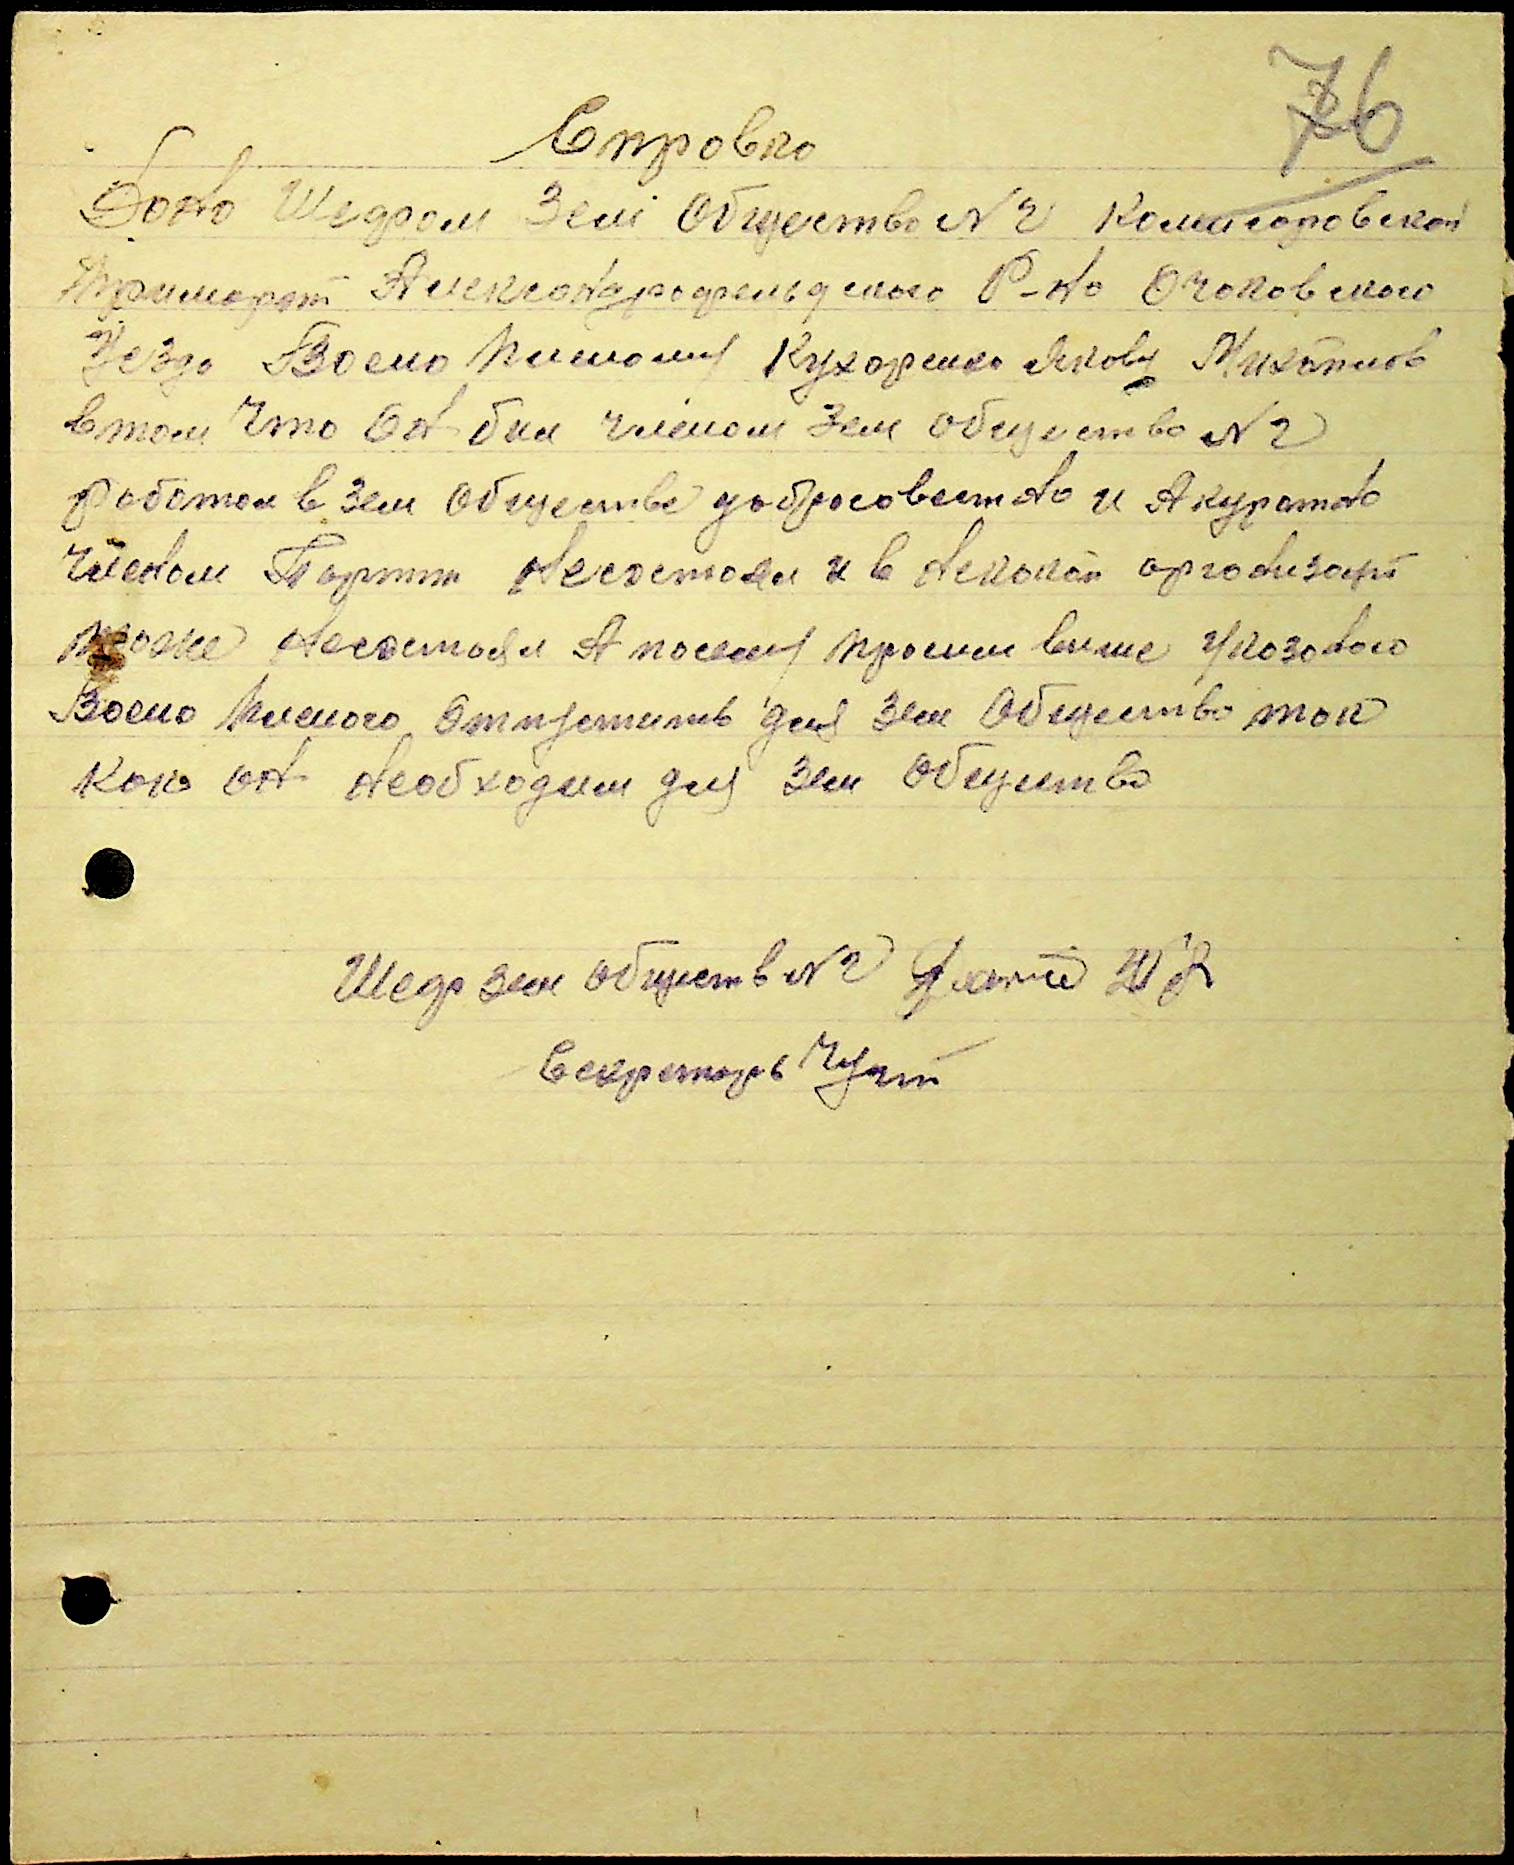 76
Справка
Дано Шефром Зем Общества N 2 Комисаровской
Примарет Александрофельдского Р-на Очаковского
Уезда Воено Пленому Кухаренко Якову Михайлов
втом Что Он был членом Зем общества N 2
Работал в Зем Обществе добросовестно и Акуратно
членом Партии Несостоял и в Некакой организаций
тоже Несостоял А посему просим выше Указаного
Воено Пленого Отпустить для Зем Общества так
Как он Необходим для Зем Общества
Шеф Зем Обществ N 2
Секретарь